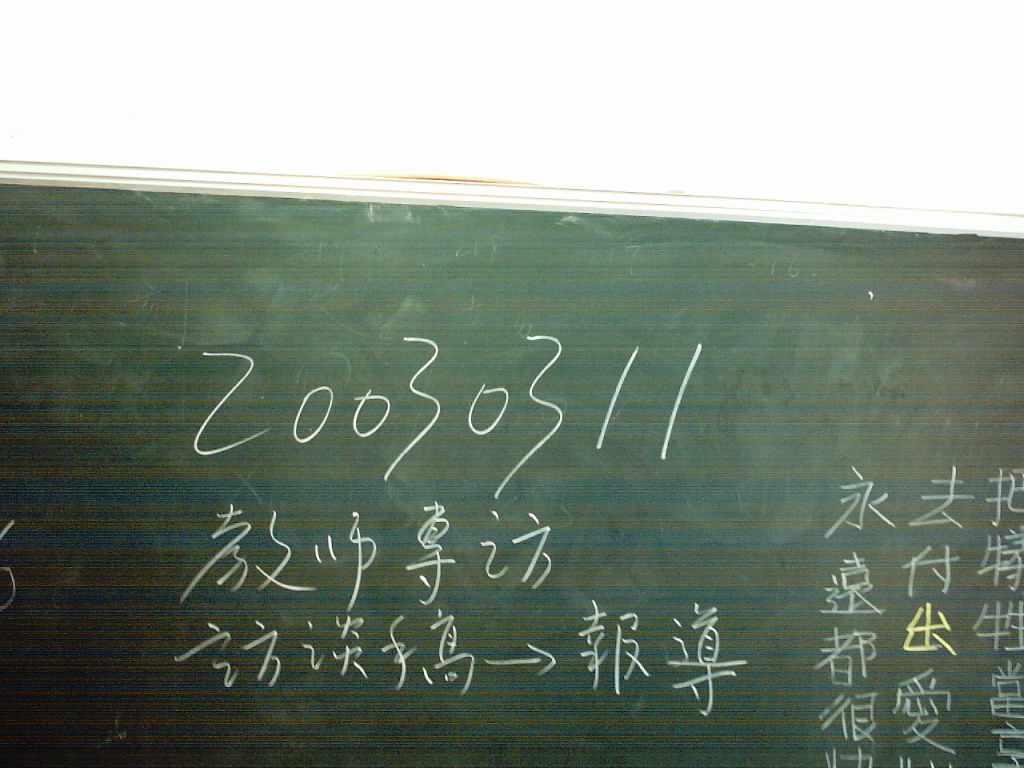 20030311
教师專访
访谈稿→報導
把犧牲當
去付出愛
永遠都很快